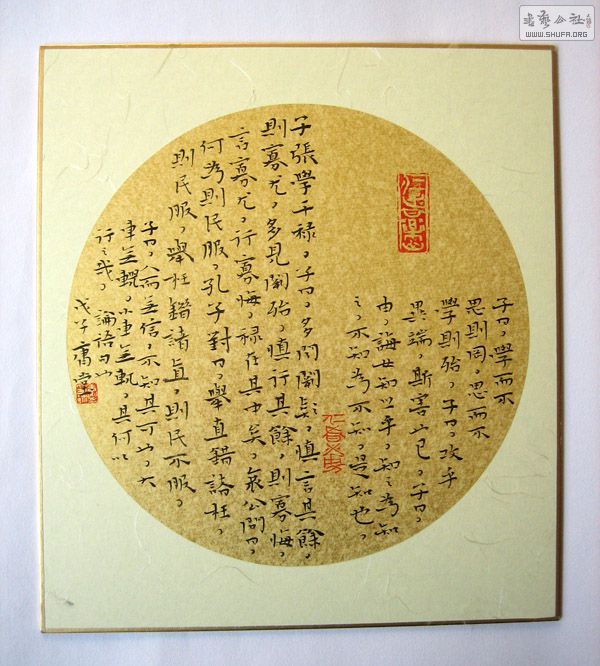 子曰，學而不
思則罔，思而不
學則殆，子曰，攻乎
異端，斯害也已，子曰，
由，誨女知之乎，知之為知
之，不知為不知，是知也，
子張學干祿，子曰，多聞闕疑，慎言其餘，
則寡尤，多見闕殆，慎行其餘，則寡悔，
言寡尤，行寡悔，祿在其中矣，哀公問曰，
何為則民服，孔子對曰，舉直錯諸枉，
則民服，舉枉錯諸直，則民不服，
子曰，人而無信，不知其可也，大
車無輗，小車無軏，其何以
行之哉，論語句也
戊子
書藝公社
WWW.SHUFA.ORG